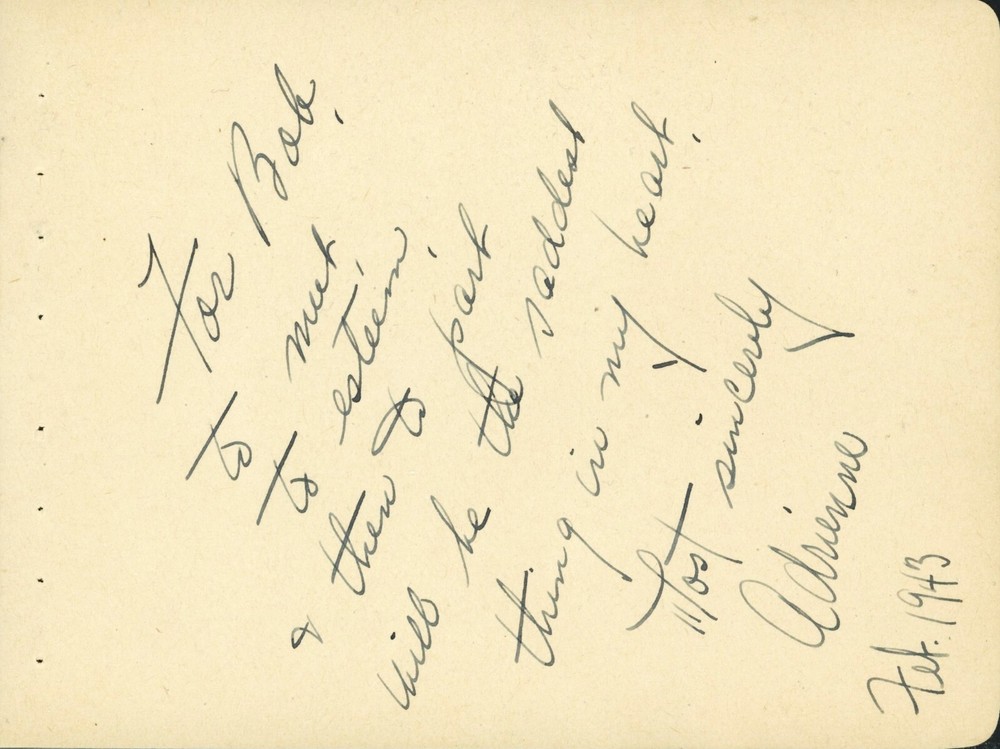 For Bob,
to meet,
to esteem,
& then to part
will be the saddest
thing in my heart.
Most sincerely
Adrienne
Feb. 1943